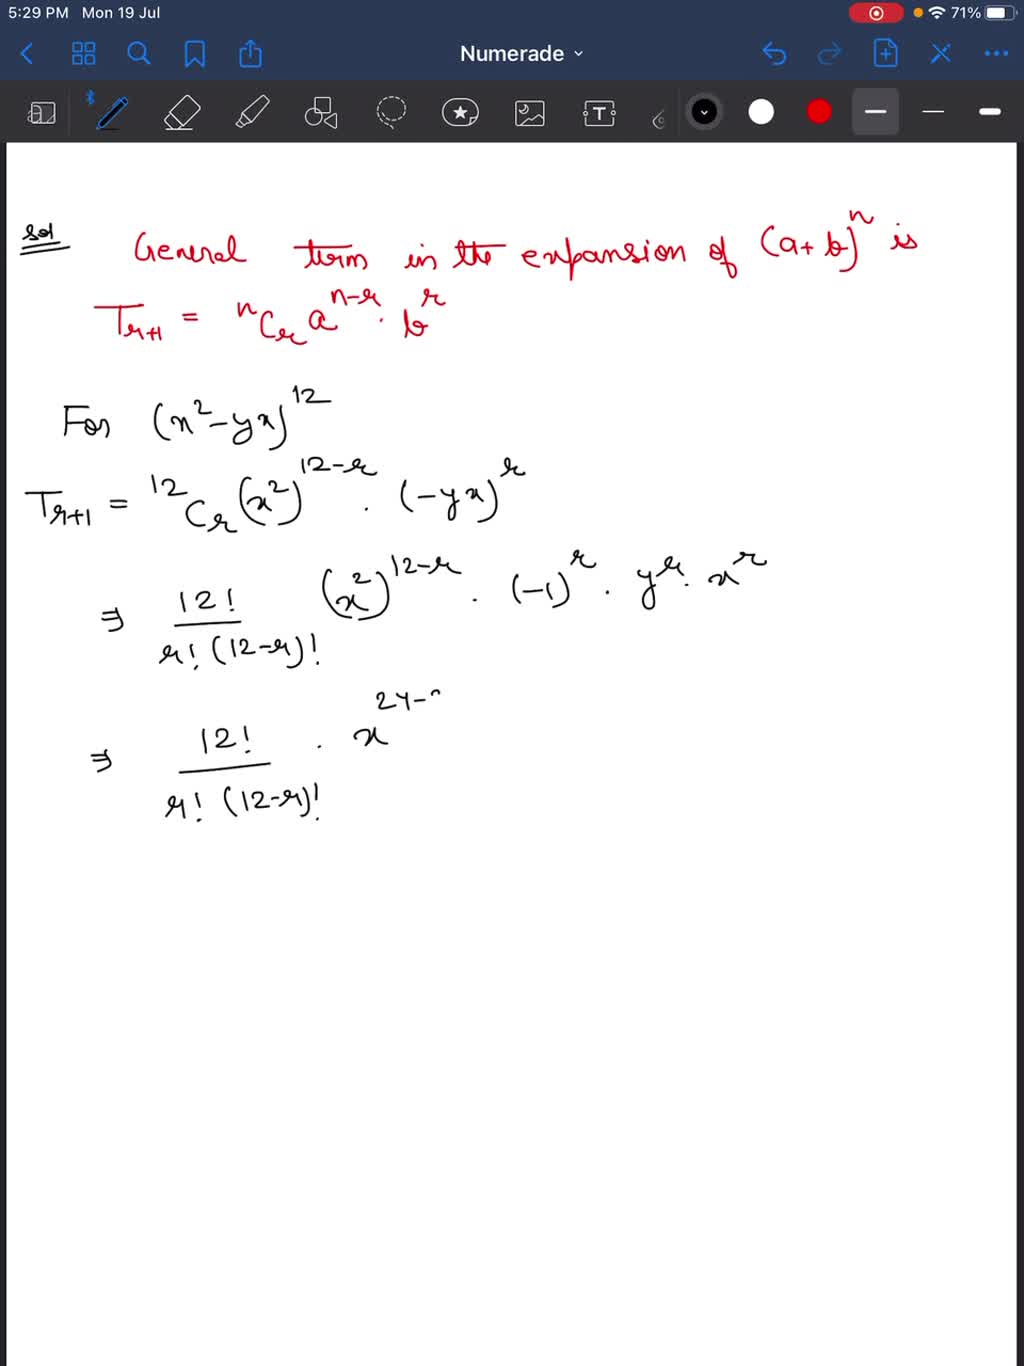 5:29 PM Mon 19 Jul 71%
Numerade
T
Sol
General term in the expansion of (a+b)^n is
T_{r+1} = ^nC_r a^{n-r} . b^r
For (x^2-yx)^{12}
T_{r+1} = ^{12}C_r (x^2)^{12-r} . (-yx)^r
⇒ 12!/r!(12-r)! (x^2)^{12-r} . (-1)^r . y^r . x^r
⇒ 12!/r!(12-r)! . x^{24-